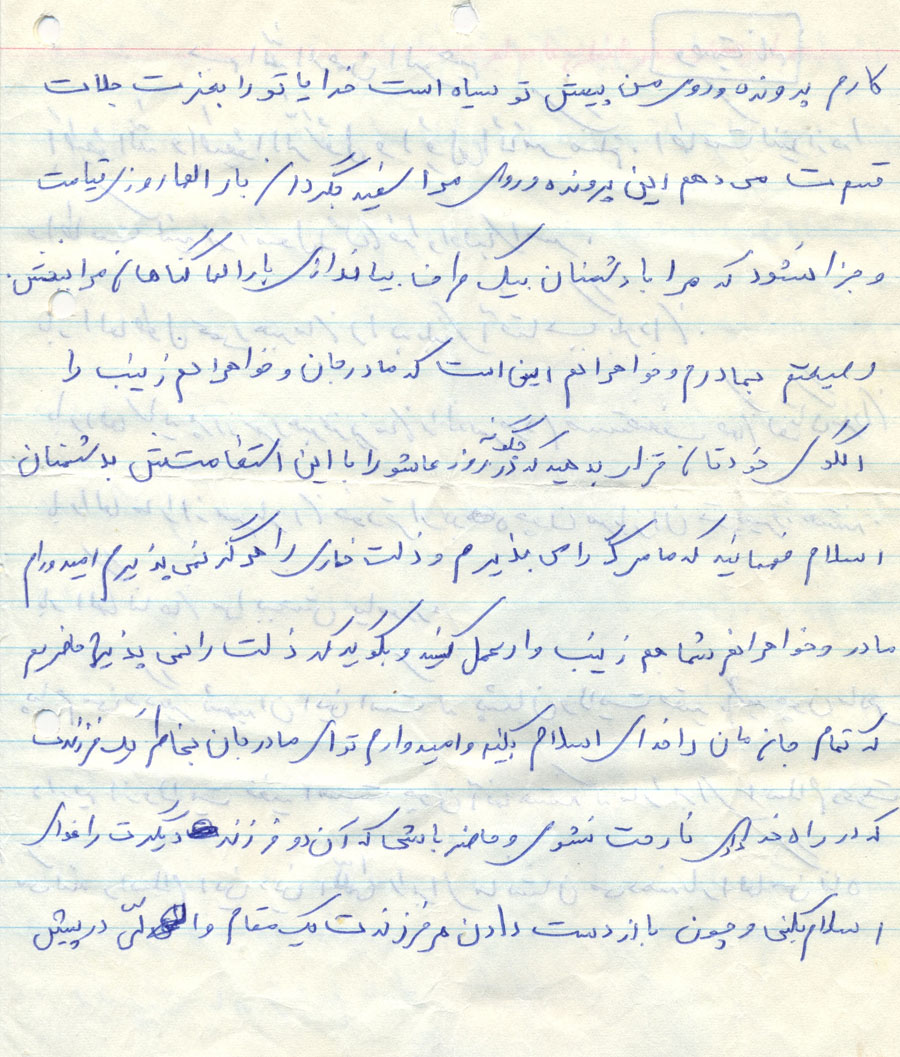 کارم پرونده و روی من پیش تو سیاه است خدایا تو را بعزت جلات
قسمت می دهم این پرونده و روی مرا سفید بگردان بار الها روز قیامت
و جزا نشود که مرا با دشمنان بیک جا بیاندازی بار الها گناهان مرا ببخش.
وصیتم بمادرم و خواهرانم این است که مادرجان و خواهرانم زینب را
الگوی خودتان قرار بدهید که چگونه در آنروز عاشورا با این استقامتش بدشمنان
اسلام فهمانید که ما مرگ را می پذیرم و ذلت خاری را هرگز نمی پذیرم امیدورام
مادر و خواهرانم شما هم زینب وار عمل کنید و بگوید که ذلت را نمی پذیریم حاضریم
که تمام جانمان را فدای اسلام بکنیم و امیدوارم تو ای مادرجان بخاطر یک فرزندت
که در راه خدا ناراحت نشوی و حاضر باشی که آن دو فرزند دیگرت را فدای
اسلام بکنی و چون با از دست دادن هر فرزندت یک مقام والائی در پیش